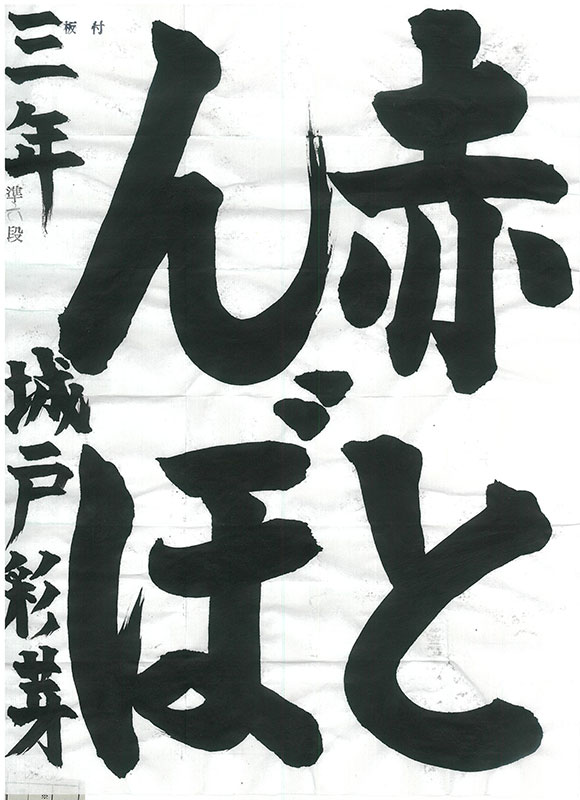 赤と
んぼ
三年 城戸彩芽
準六段
板付